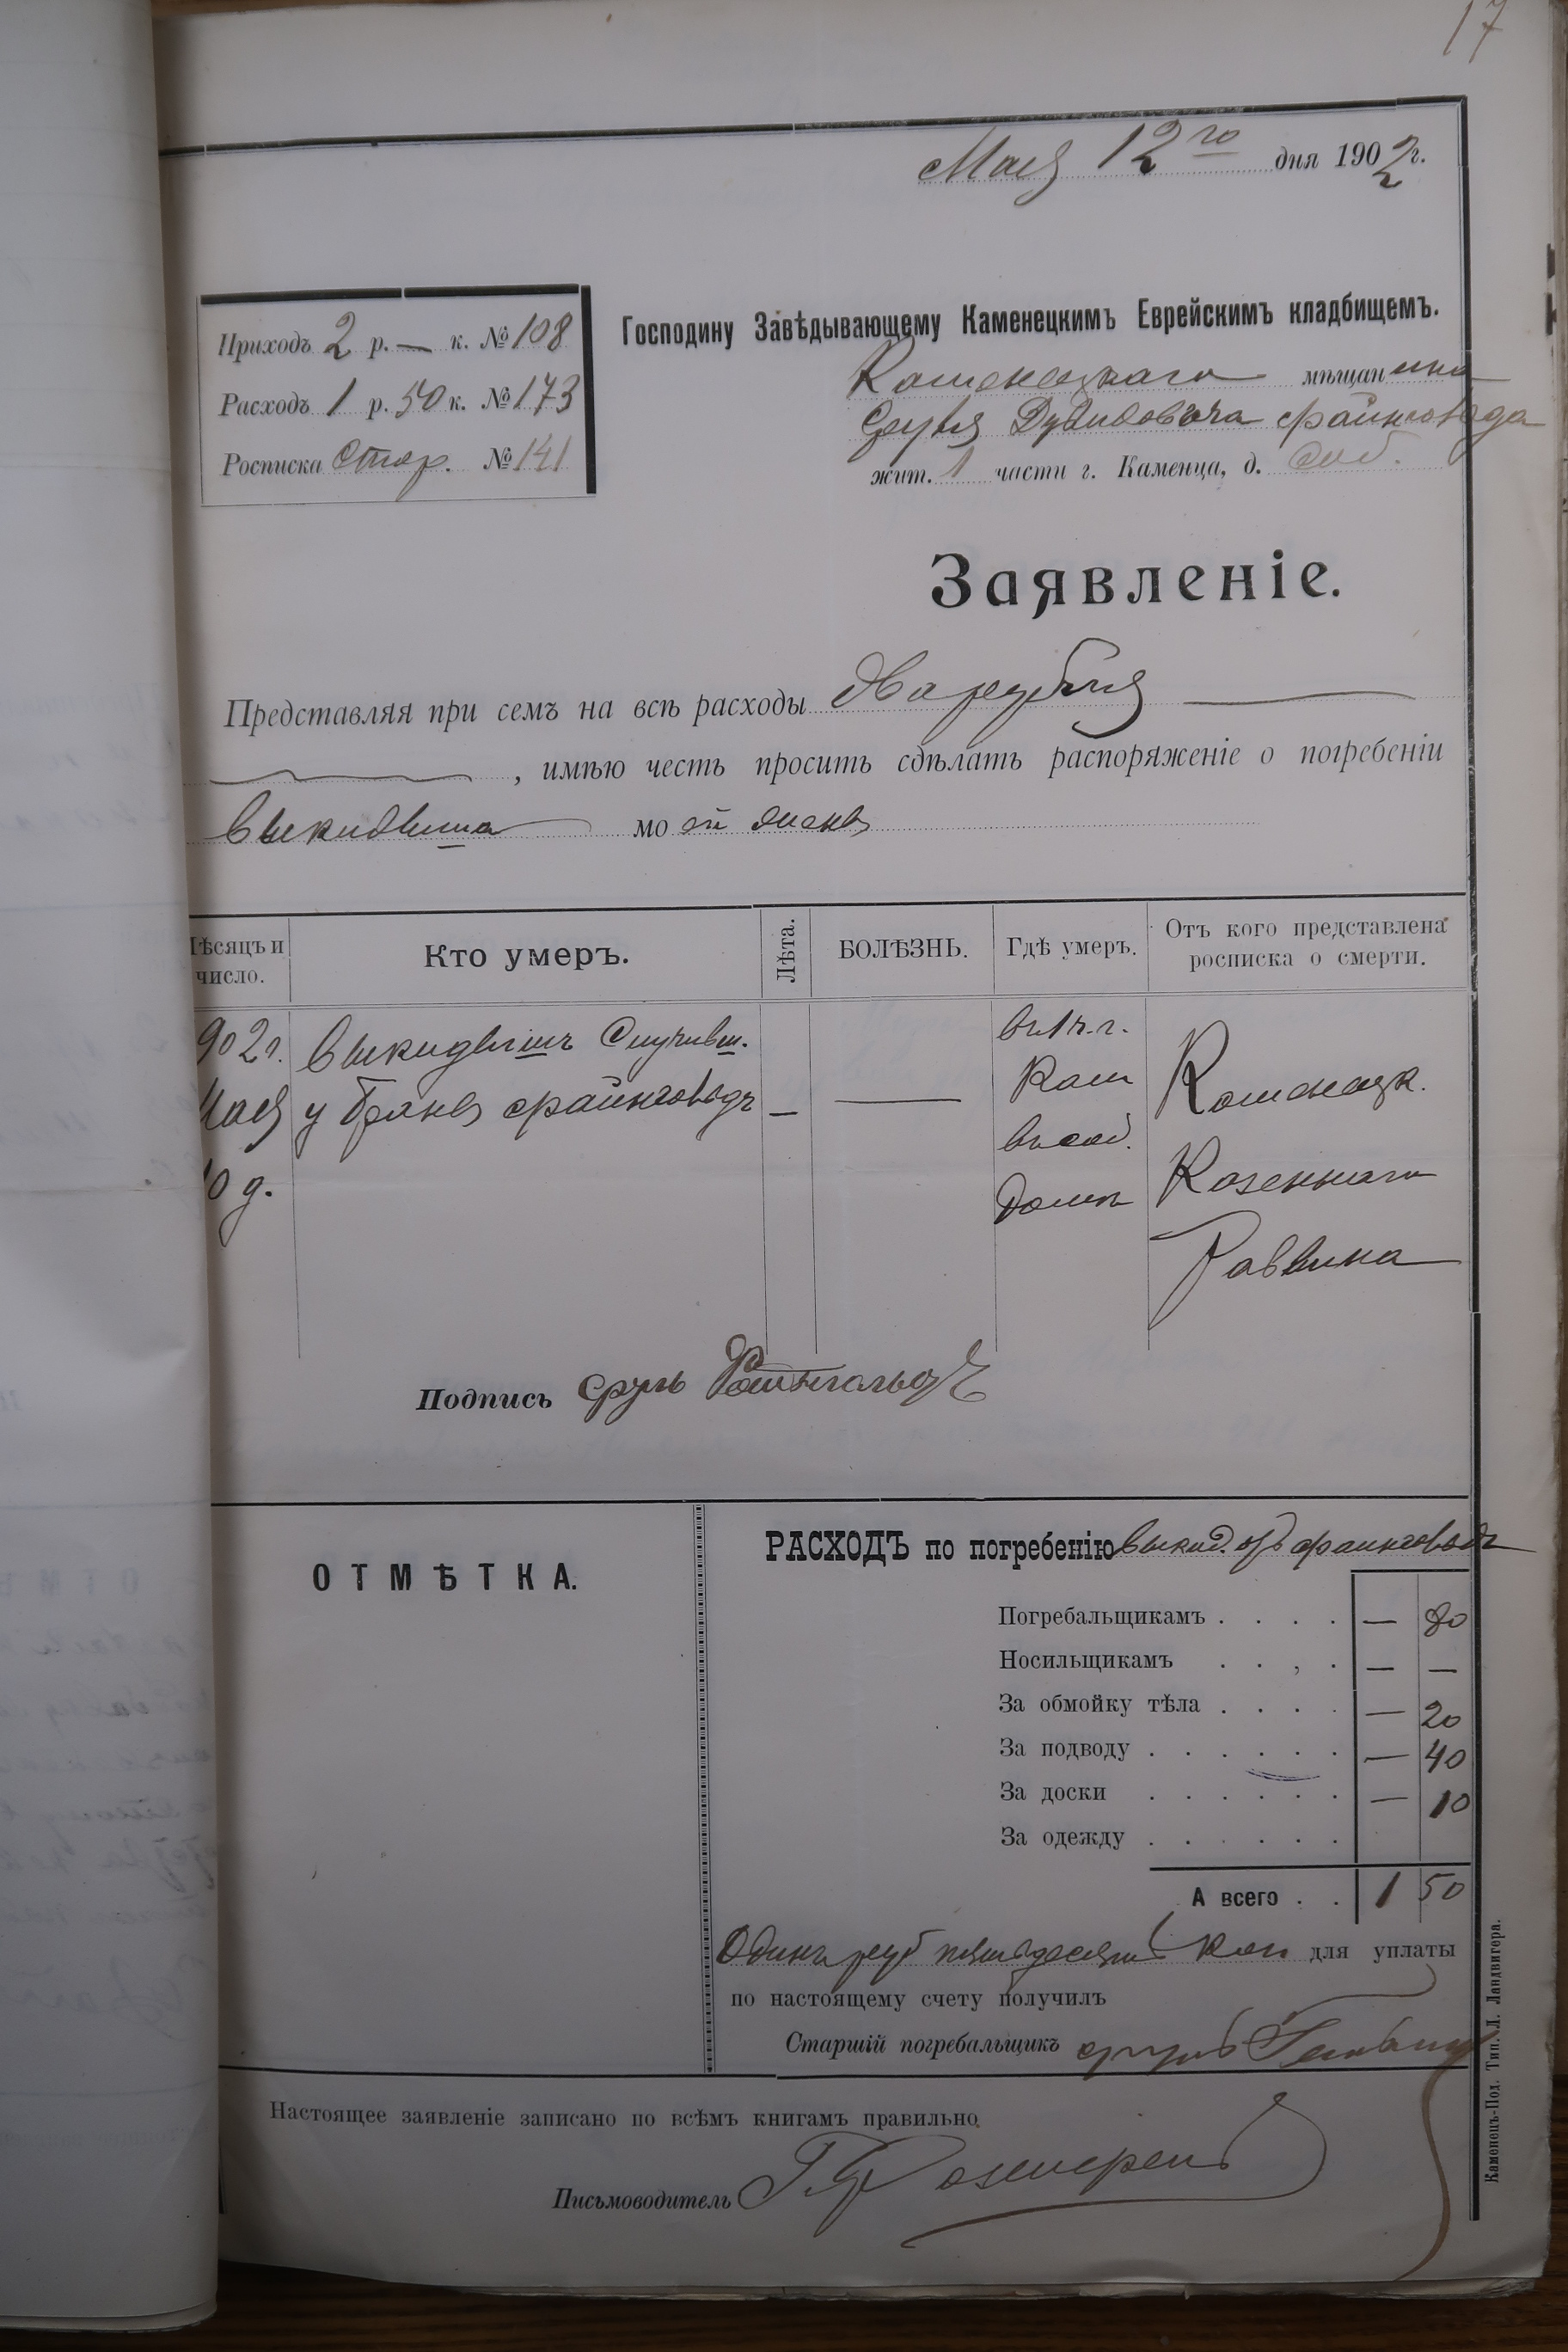 17
Мая 12го дня 1902 г.
Приходъ 2 р. — к. № 108
Расходъ 1 р. 50 к. № 173
Росписка Стар. № 141
Господину Завѣдывающему Каменецкимъ Еврейскимъ кладбищемъ.
Каменецкаго мѣщанина
Сруля Дувидовича Файнгольда
жит. 1 части г. Каменца, д. соб.
Заявленіе.
Представляя при семъ на всѣ расходы два рубля
, имѣю честь просить сдѣлать распоряженіе о погребеніи
выкидыша моей жены
Мѣсяцъ и число.
Кто умеръ.
Лѣта.
БОЛѢЗНЬ.
Гдѣ умеръ.
Отъ кого представлена росписка о смерти.
902 г.
Мая
10 д.
выкидышъ случивш.
у Брáны Файнгольдъ
—
—
въ 1 ч. г.
Кам
въ соб.
домѣ
Каменецк.
Казеннаго
Раввина
Подпись Сруль Файнгольдъ
ОТМѢТКА.
РАСХОДЪ по погребенію выкид. Файнгольдъ
Погребальщикамъ . . . . — 80
Носильщикамъ . . , . — —
За обмойку тѣла . . . . — 20
За подводу . . . . . . — 40
За доски . . . . . . — 10
За одежду . . . . . .
А всего . . 1 50
Одинъ руб пятьдесятъ коп для уплаты
по настоящему счету получилъ
Старшій погребальщикъ
Настоящее заявленіе записано по всѣмъ книгамъ правильно.
Письмоводитель
Каменецъ-Под. Тип. Л. Ландвигера.